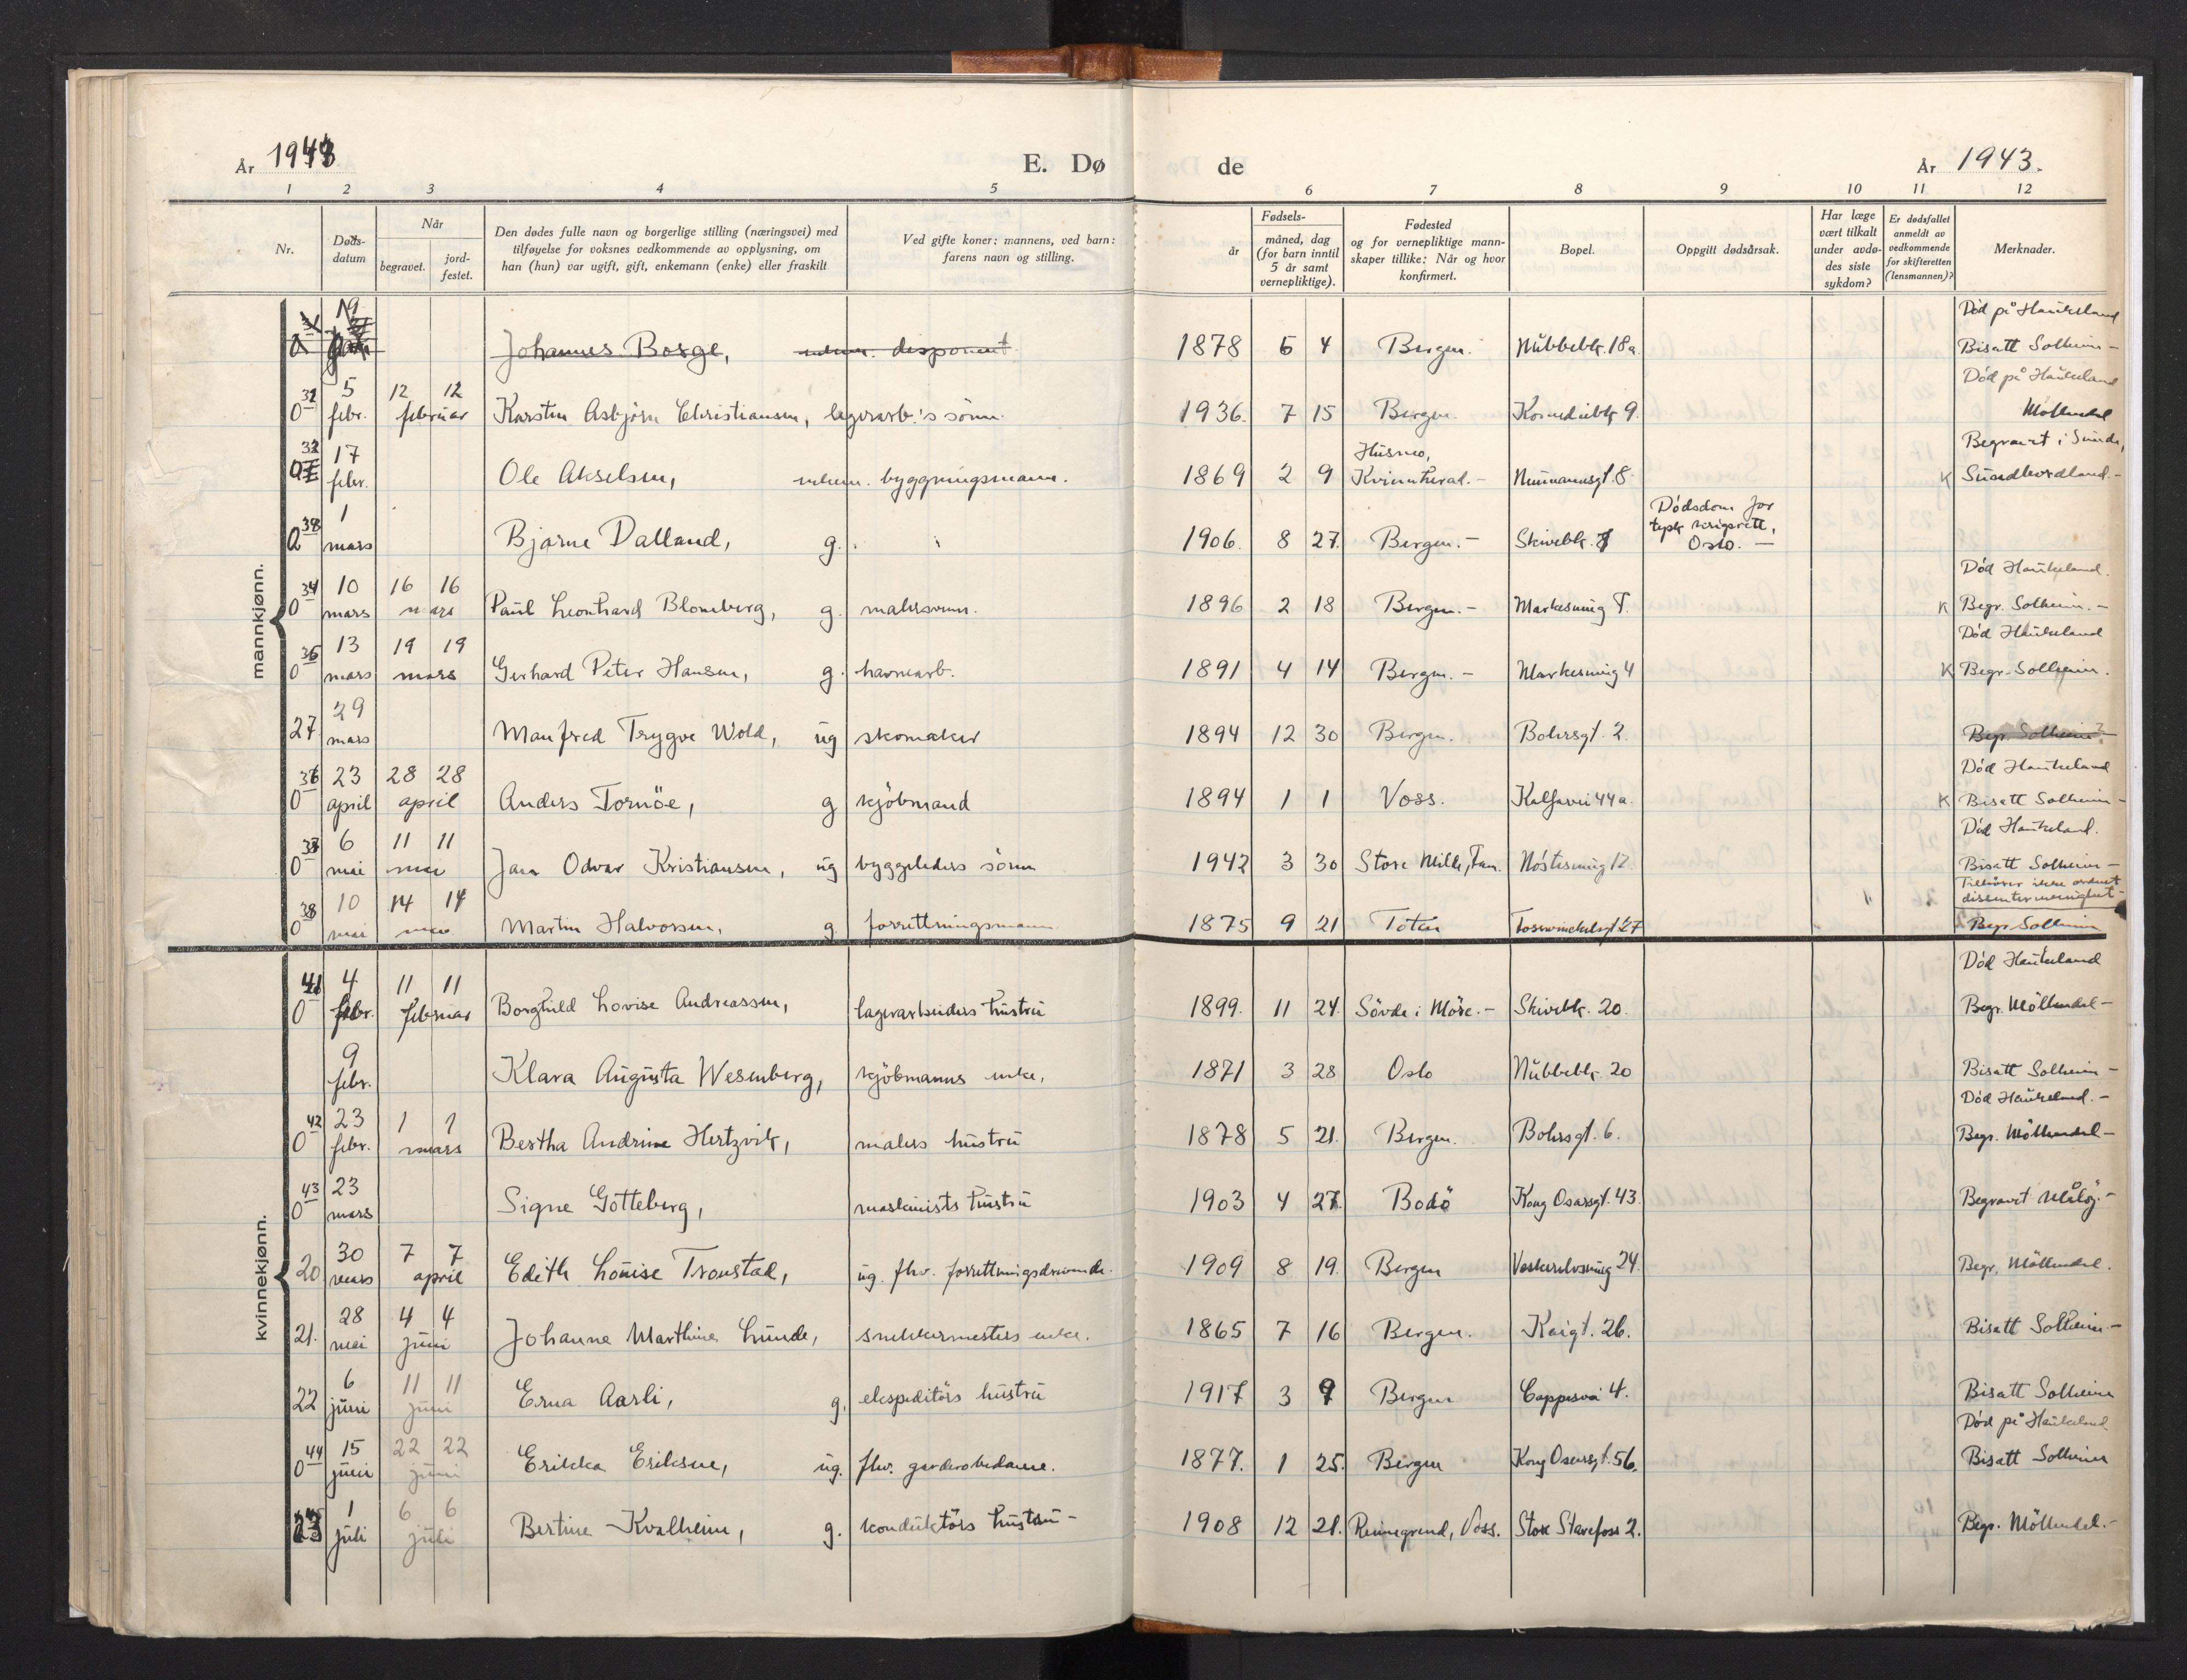 År 1943
E. Dø de
År 1943.
1 2 3 4 5 6 7 8 9 10 11 12
Nr.
Døds-
datum
Når
begravet.
jord-
festet.
Den dødes fulle navn og borgerlige stilling (næringsvei) med
tilføyelse for voksnes vedkommende av opplysning, om
han (hun) var ugift, gift, enkemann (enke) eller fraskilt
Ved gifte koner: mannens, ved barn:
farens navn og stilling.
Fødsels-
år
måned, dag
(for barn inntil
5 år samt
vernepliktige).
Fødested
og for vernepliktige mann-
skaper tillike: Når og hvor
konfirmert.
Bopel.
Oppgitt dødsårsak.
Har læge
vært tilkalt
under avdø-
des siste
sykdom?
Er dødsfallet
anmeldt av
vedkommende
for skifteretten
(lensmannen)?
Merknader.
mannkjønn.
Død på Haukeland
Johannes Borge, disponent 1878 6 4 Bergen. Nubbebk. 18a. Bisatt Solheim –
Død på Haukeland
0 5 febr. 12 12 februar Karsten Asbjørn Christiansen, lagerarb.'s sönn. 1936. 7 15 Bergen. Komediebk 9. Möllendal
32 17 febr. Ole Akselsen, enkem. byggningsmann. 1869 2 9 Husnes, Kvinnherad. – Neumannsgt. 8. K Begravet i Sunde, Sundhordland. –
38 1 mars Bjarne Dalland, g. 1906. 8 27. Bergen. – Skivebk. Dødsdom for tysk krigsrett, Oslo. –
Död Haukeland.
34 0 10 mars 16 16 mars Paul Leonhard Blomberg, g. malersvenn. 1896 2 18 Bergen. – Markesmug 7. K Begr. Solheim. –
Död Haukeland
0 13 mars 19 19 mars Gerhard Peter Hansen, g. havnearb. 1891 4 14 Bergen. – Markesmug 4 K Begr. Solheim.
27 29 mars Manfred Trygve Wold, ug skomaker 1894 12 30 Bergen. Bohrsgt. 2. Begr. Solheim?
Död Haukeland
36 0 23 april 28 28 april Anders Tornöe, g kjöbmand 1894 1 1 Voss. Kalfarvei 44a. K Bisatt Solheim –
Död Haukeland.
0 6 mai 11 11 mai Jan Odvar Kristiansen, ug byggeleders sönn 1942 3 30 Store Milde, Fan. Nöstesmug 12. Bisatt Solheim –
Tilhörer ikke ordnet
dissentermenighet –
38 0 10 mai 14 14 mai Martin Halvorsen, g forrettningsmann 1875 9 21 Toten Begr Solheim
kvinnekjønn.
Död Haukeland
41 0 4 febr. 11 11 februar Borghild Lovise Andreassen, lagerarbeiders hustru 1899. 11 24. Sövde i Möre. – Skivebk. 20. Begr. Möllendal –
9 febr. Klara Augusta Wesenberg, kjöbmanns enke, 1871 3 28 Oslo Nubbebk. 20 Bisatt Solheim –
Död Haukeland. –
42 0 23 febr. 1 1 mars Bertha Andrine Hertzvik, malers hustru 1878 5 21. Bergen. Bohrsgt. 6. Begr. Möllendal –
43 0 23 mars Signe Götteberg, maskinists hustru 1903 4 27. Bodö Kong Oscarsgt. 43. Begravet Målöy. –
20 30 mars 7 7 april Edith Louise Tronstad, ug. fhv. forrettningsdrivende. 1909 8 19. Bergen 24. Begr. Möllendal.
21. 28 mai 4 4 juni Johanne Marthine Lunde, snekkermesters enke. 1865 7 16 Bergen. Kaigt. 26. Bisatt Solheim. –
22 6 juni 11 11 juni Erna Aarli, g. ekspeditörs hustru 1917 3 9 Bergen Cappesvei 4. Bisatt Solheim
Död på Haukeland
44 0 15 juni 22 22 juni Erikka Eriksen, ug. fhv. garderobedame. 1877. 1 25. Bergen Kong Oscarsgt. 56. Bisatt Solheim
1 juli 6 6 juli Bertine Kvalheim, g. konduktörs hustru – 1908 12 21. Rennegrend, Voss. Store Starefoss 2. Begr. Möllendal. –